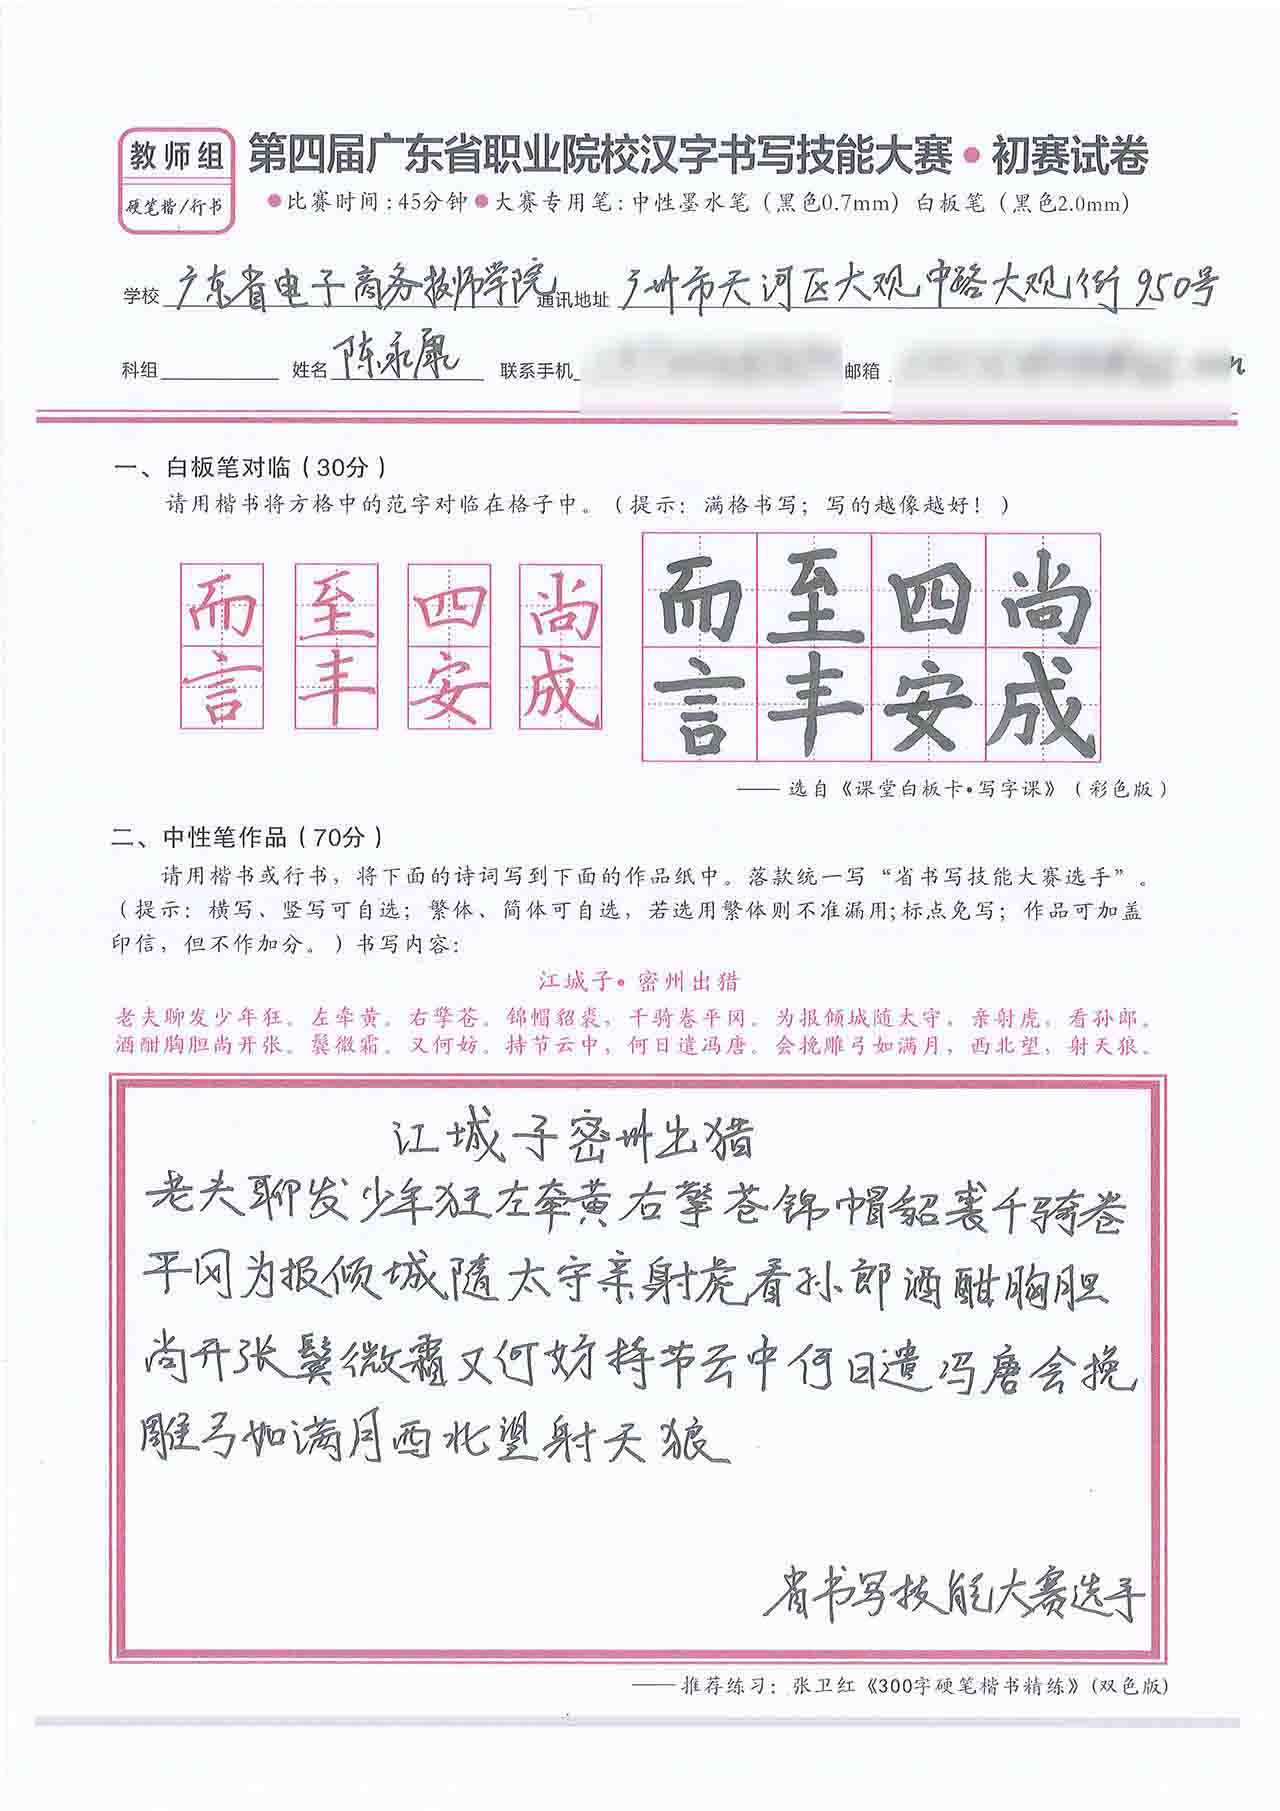 教师组
硬笔楷/行书
第四届广东省职业院校汉字书写技能大赛•初赛试卷
●比赛时间:45分钟●大赛专用笔:中性墨水笔(黑色0.7mm)白板笔(黑色2.0mm)
学校 广东省电子商务技师学院 通讯地址 广州市天河区大观中路大观街950号
科组 姓名 陈永康 联系手机 邮箱
一、白板笔对临(30分)
请用楷书将方格中的范字对临在格子中。(提示:满格书写;写的越像越好!)
而 至 四 尚 而至四尚
言 丰 安 成 言丰安成
——选自《课堂白板卡•写字课》(彩色版)
二、中性笔作品(70分)
请用楷书或行书,将下面的诗词写到下面的作品纸中。落款统一写“省书写技能大赛选手”。
(提示:横写、竖写可自选;繁体、简体可自选,若选用繁体则不准漏用;标点免写;作品可加盖
印信,但不作加分。)书写内容:
江城子•密州出猎
老夫聊发少年狂。左牵黄。右擎苍。锦帽貂裘,千骑卷平冈。为报倾城随太守,亲射虎,看孙郎。
酒酣胸胆尚开张。鬓微霜。又何妨。持节云中,何日遣冯唐。会挽雕弓如满月,西北望,射天狼。
江城子密州出猎
老夫聊发少年狂左牵黄右擎苍锦帽貂裘千骑卷
平冈为报倾城随太守亲射虎看孙郎酒酣胸胆
尚开张鬓微霜又何妨持节云中何日遣冯唐会挽
雕弓如满月西北望射天狼
省书写技能大赛选手
——推荐练习:张卫红《300字硬笔楷书精练》(双色版)